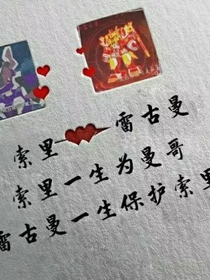 索里 雷古曼
索里一生为曼哥
雷古曼一生保护索里